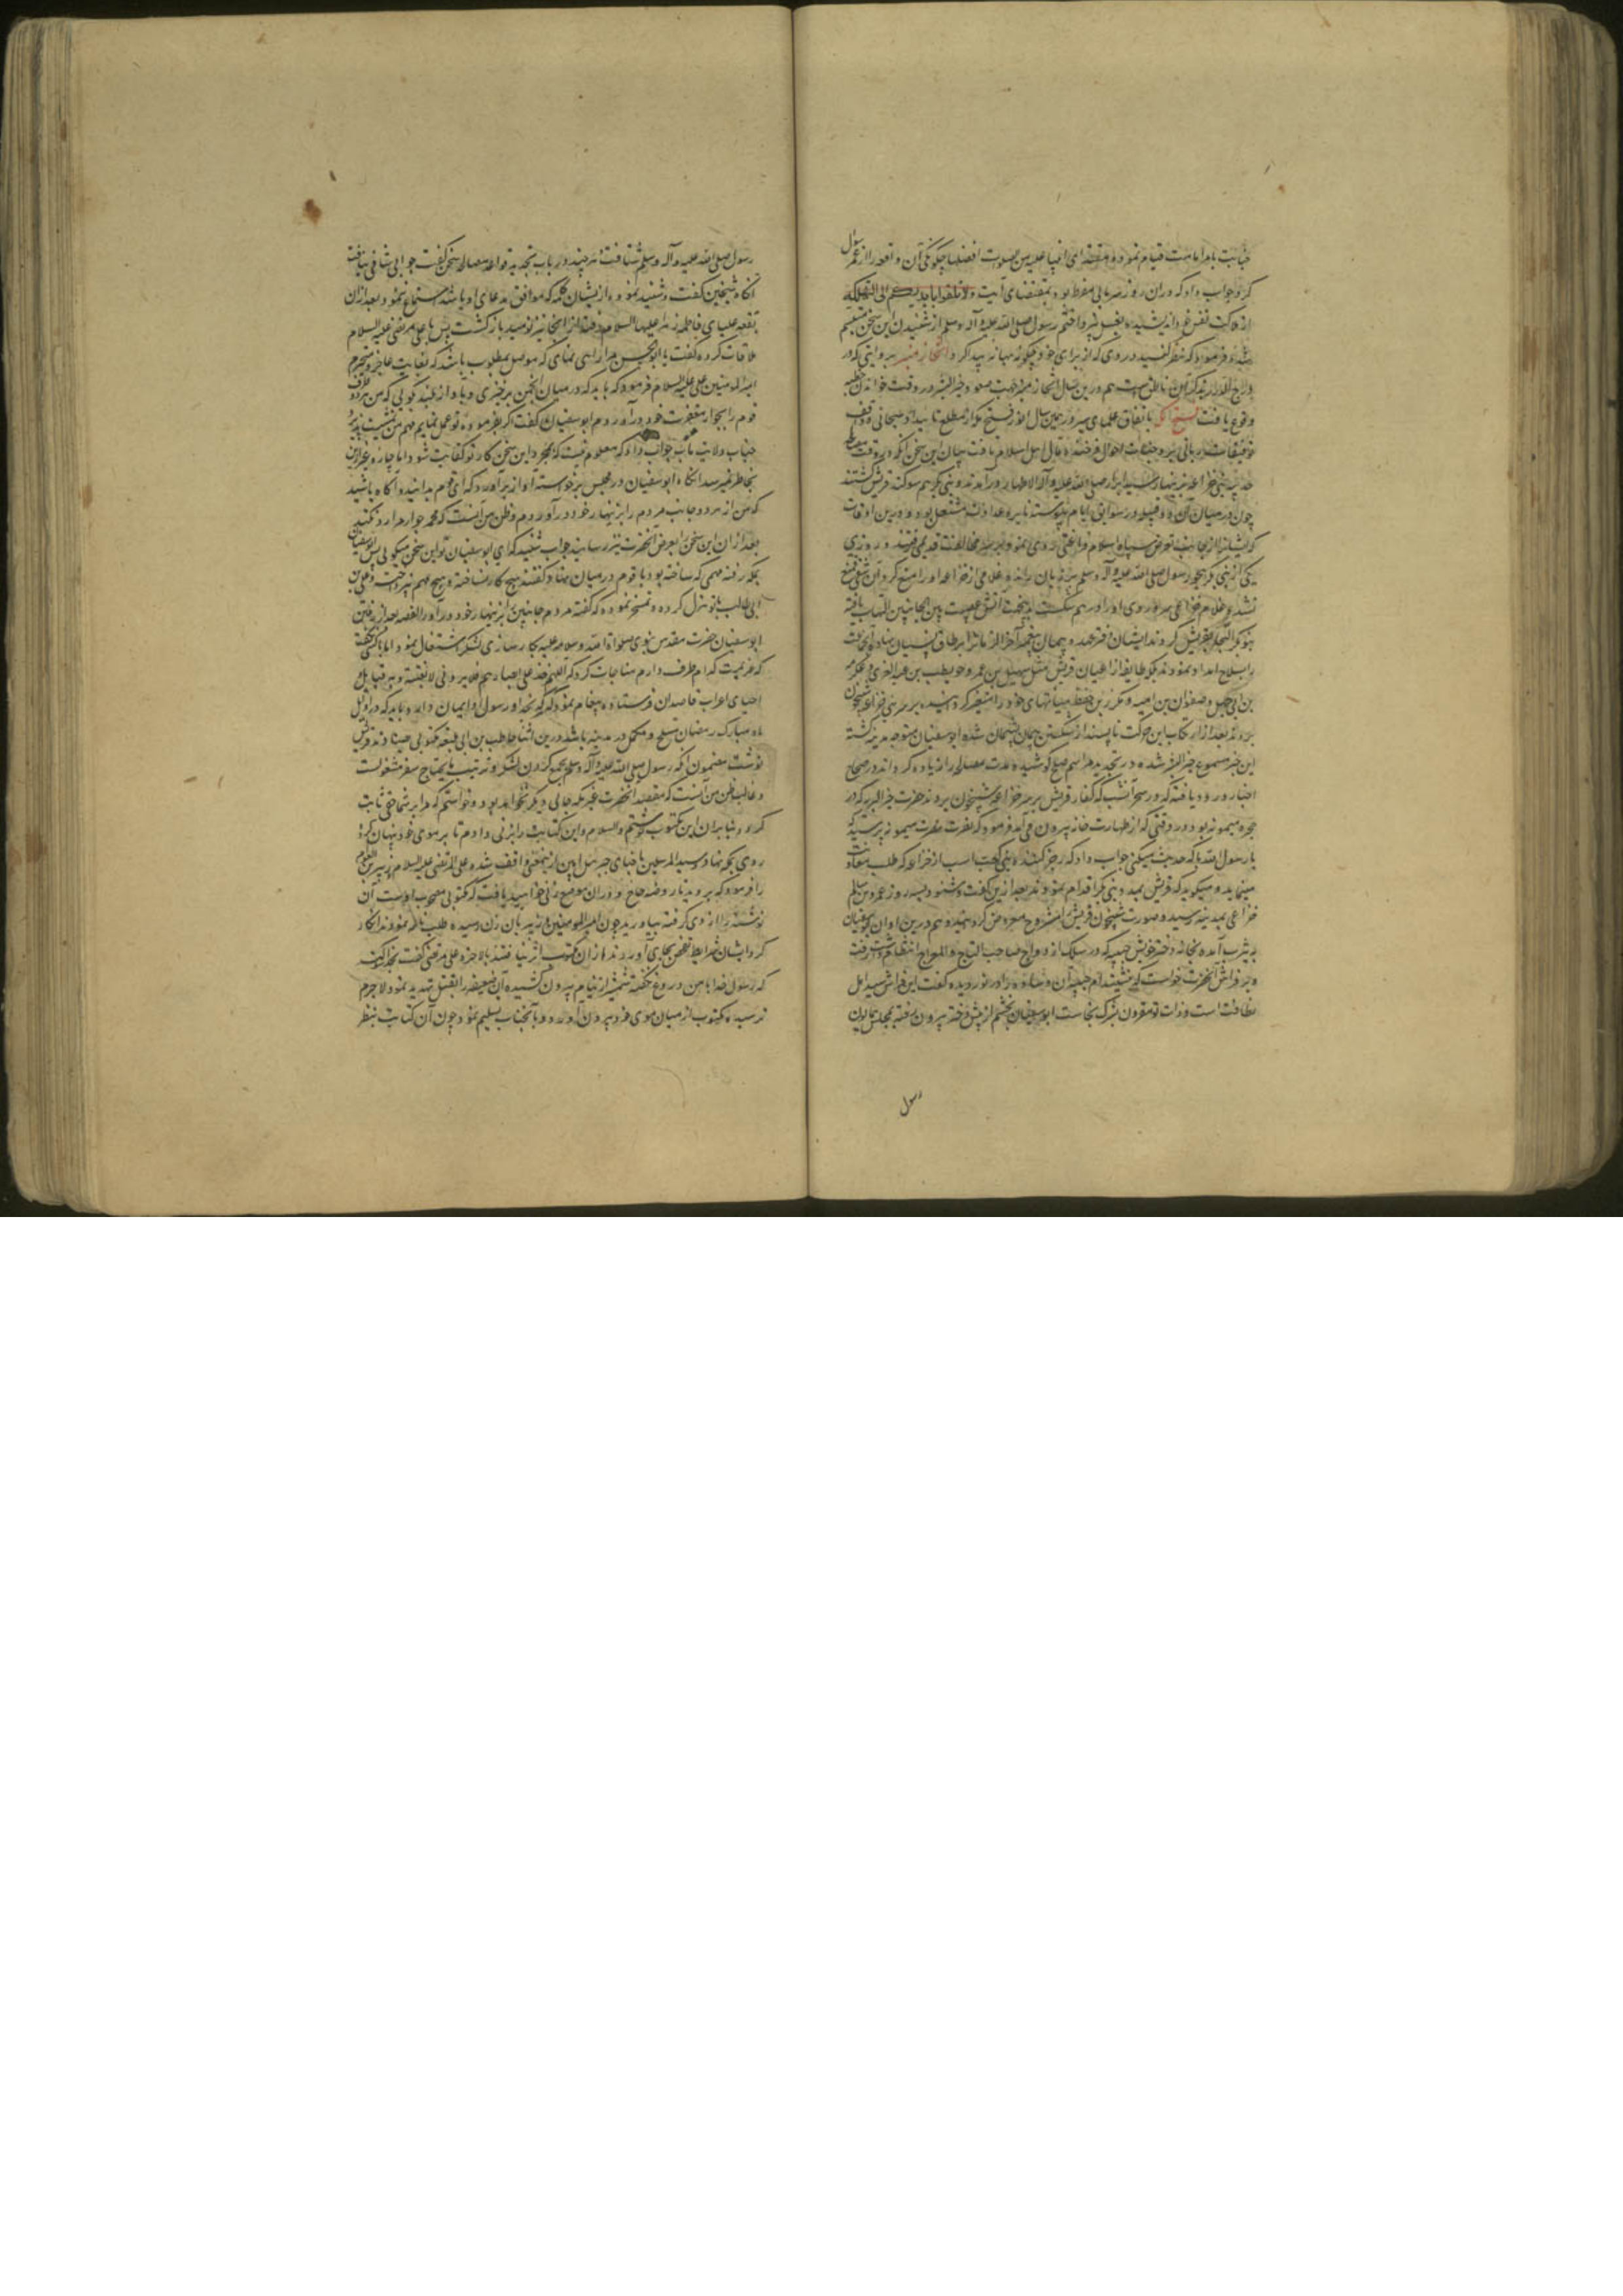 جنابت بامر امامت قیام نموده مقتدای انبیا علیه من الصلوات افضلها چگونگی آن واقعه را از عمر سوال
کرد جواب داد که در آن روز سرمایی مفرط بود بمقتضای آیت ولا تلقوا بایدیکم الی التهلکه
از هلاکت نفس خود اندیشیده بغسل نپرداختم رسول صلی الله علیه و آله وسلم از شنیدن این سخن متبسم
شد و فرمود که نظر کنید در وی که از برای خود چگونه بهانه پیدا کرد و اتخاذ منبر بروایتی که در
درج الدرر بذکر آن ناطق است هم درین سال اتخاذ منبر جهت صعود خیر البشر در وقت خواندن خطبه
وقوع یافت فتح مکه باتفاق علمای سیر در همین سال انور فتح مکه از مطلع تایید سبحانی و افق
توفیقات ربانی بر وجنات احوال فرخنده مآل اهل اسلام تافت بیان این سخن آنکه در وقت مصالحه
حدیبیه بنی خزاعه بزینهار سید ابرار صلی الله علیه و آله الاطهار درآمدند و بنی بکر هم سوگند قریش گشتند
چون در میان آن دو قبیله در سوابق ایام پیوسته نایره عداوت مشتعل بود و درین اوقات
که ایشان را از جانب تعرض سپاه اسلام فراغتی روی نمود بر سر مخالفت قدیم رفتند و روزی
یکی از بنی بکر بهجو رسول صلی الله علیه و آله وسلم تر زبان شده غلامی از خزاعه او را منع کرد آن شقی ممتنع
نشد و غلام خزاعی سر و روی او را در هم شکست بدین جهت آتش عصبیت بین الجانبین التهاب یافته
بنو بکر التجا بقریش کردند ایشان افتر عهد و پیمان پیغمبر آخر الزمان را بر طاق نسیان نهاده آنجماعت
را بسلاح امداد نمودند بلکه طایفه از اعیان قریش مثل سهیل بن عمرو و حویطب بن عبدالعزی و عکرمه
بن ابی جهل و صفوان بن امیه و مکرز بن حفص هیئاتهای خود را متغیر کرده شبی بر سر بنی خزاعه شبیخون
بردند بعد از ارتکاب این حرکت ناپسند از شکستن پیمان پشیمان شده ابوسفیان متوجه مدینه گشته
این خبر مسموع خیر البشر شده در تجدید مراسم صلح کوشیده مدت مصالحه را زیاده گرداند و در صحاح
اخبار ورود یافته که در سحر آن شب که کفار قریش بر سر خزاعه شبیخون بردند حضرت خیر البریه که در
حجره میمونه بود در وقتی که از طهارت خانه بیرون می آمد فرمود که نصرت نصرت میمونه پرسید که
یا رسول الله با که حدیث میکنی جواب داد که رجز کننده بنی کعب است از خزاعه که طلب معاونت
مینماید و میگوید که قریش بمدد بنی بکر اقدام نمودند بعد از این گفت و شنود بسه روز عمرو بن سالم
خزاعی بمدینه رسید و صورت شبیخون قریش را مشروح معروض گردانید و هم درین اوان ابوسفیان
به یثرب آمده بخانه دختر خویش ام حبیبه که در سلک ازدواج صاحب التاج و المعراج انتظام داشت رفت
و بر فراش آنحضرت خواست که بنشیند ام حبیبه آن وساده را در نوردیده گفت این فراش سید اهل
نظافت است و ذات تو مقرون بشرک نجاست ابوسفیان بخشم از پیش دختر بیرون رفته بمجلس همایون
رسول
رسول صلی الله علیه و آله وسلم شتافت هر چند در باب تجدید قواعد مصالحه سخن گفت جوابی شافی نیافت
آنگاه شیخین گفت و شنید نموده از ایشان کلمه که موافق مدعای او باشد استماع ننمود بعد از آن
ببقعه علیای فاطمه زهرا علیها السلام رفته از آنجا نیز نومید بازگشت پس با علی مرتضی علیه السلام
ملاقات کرده گفت یا ابوالحسن مرا راهی نمای که موصل مطلوب باشد که بغایت عاجز و متحیرم
امیر المومنین علی علیه السلام فرمود که باید که در میان انجمن برخیزی و بآواز بلند گویی که من هر دو طرف
قوم را بجوار مغفرت خود درآوردم ابوسفیان گفت اگر بفرموده تو عمل نمایم مهم من تمشیت پذیرد
جناب ولایت مآب جواب داد که معلوم نیست که بمجرد این سخن کار تو کفایت شود اما چاره غیر از این
بخاطر نمیرسد آنگاه ابوسفیان در مجلس برخواسته آواز برآورد که ای قوم بدانید و آگاه باشید
که من از هر دو جانب مردم را بزینهار خود درآوردم و ظن من آنست که محمد جوار مرا رد نکند
بعد از آن این سخن را بعرض آنحضرت نیز رسانید جواب شنید که ای ابوسفیان تو این سخن میگویی پس ابوسفیان
بمکه رفته مهمی که ساخته بود با قوم در میان نهاد گفتند هیچ کار نساخته و هیچ مهم نپرداخته و علی بن
ابی طالب با تو هزل کرده و تمسخر نموده که گفته مردم جانبین را بزینهار خود درآور القصه بعد از رفتن
ابوسفیان حضرت مقدس نبوی صلواة الله وسلامه علیه بکارسازی لشکر اشتغال نمود اما با کس نگفت
که عزیمت کدام طرف دارم مناجات کرد که اللهم خذ علی ابصارهم فلا یرونی الا بغتة و بر قبایل
احیای اعراب قاصدان فرستاده پیغام نمود که هر که بخدا و رسول او ایمان دارد باید که در اوایل
ماه مبارک رمضان مسلح و مکمل در مدینه باشد درین اثنا حاطب بن ابی بلتعه مکتوبی بصنادید قریش
نوشت مضمون آنکه رسول صلی الله علیه و آله وسلم بجمع کردن لشکر و ترتیب مایحتاج سفر مشغولست
و غالب ظن من آنست که مقصد آنحضرت غیر مکه جایی دیگر نخواهد بود و خواستم که مرا بر شما حقی ثابت
گردد بنابر آن این مکتوب نوشتم والسلام و این کتابت را بزنی داد تا بر موی خود پنهان کرده
روی بمکه نهاد و سید المرسلین باخبار جبرئیل امین از ینمعنی واقف شده علی المرتضی علیه السلام و زبیر بن العوام
را فرمود که بروید تا روضه خاخ و در آن موضع زنی را خواهید یافت که مکتوبی مصحوب اوست آن
نوشته را از وی گرفته بیاورید چون امیر المومنین و زبیر بآن زن رسیده طلب نامه نمودند انکار
کرد ایشان شرایط تفحص بجای آوردند از آن مکتوب اثر نیافتند بالاخره علی مرتضی گفت بخدا سوگند
که رسول خدا با من دروغ نگفته شمشیر از نیام بیرون کشیده آن ضعیفه را بقتل تهدید نمود لاجرم
ترسیده مکتوب از میان موی خود بیرون آورده و بآنجناب تسلیم نمود چون آن کتابت بنظر